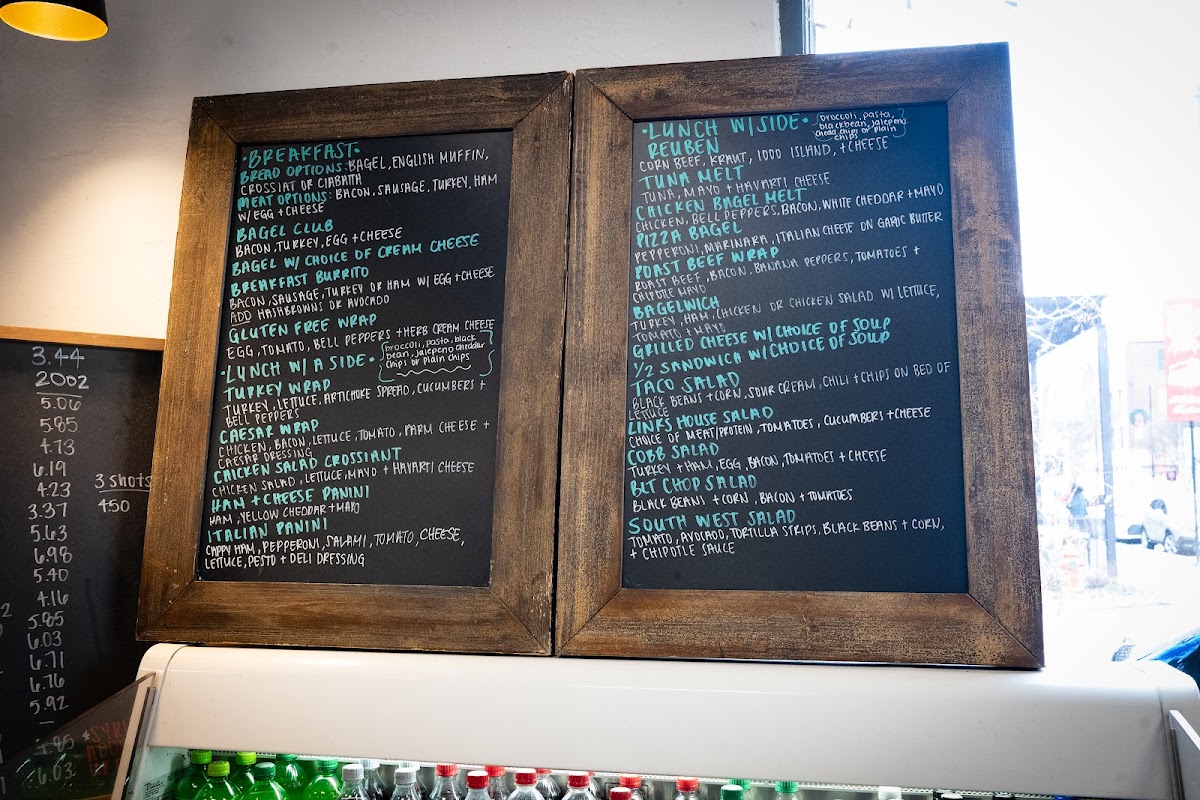 3.44
2002
5.06
5.85
4.73
6.19
4.23
3 shots
3.37
450
5.63
6.98
5.40
4.16
5.85
6.03
6.71
6.76
5.92
—
6.03
•BREAKFAST•
BREAD OPTIONS: BAGEL, ENGLISH MUFFIN,
CROSSIAT OR CIABATTA
MEAT OPTIONS: BACON, SAUSAGE, TURKEY, HAM
W/ EGG + CHEESE
BAGEL CLUB
BACON, TURKEY, EGG + CHEESE
BAGEL W/ CHOICE OF CREAM CHEESE
BREAKFAST BURRITO
BACON, SAUSAGE, TURKEY OR HAM W/ EGG + CHEESE
ADD HASHBROWNS OR AVOCADO
GLUTEN FREE WRAP
EGG, TOMATO, BELL PEPPERS + HERB CREAM CHEESE
•LUNCH W/ A SIDE•
broccoli, pasta, black
bean, jalepeno cheddar
chips or plain chips
TURKEY WRAP
TURKEY, LETTUCE, ARTICHOKE SPREAD, CUCUMBERS +
BELL PEPPERS
CAESAR WRAP
CHICKEN, BACON, LETTUCE, TOMATO, PARM CHEESE +
CAESAR DRESSING
CHICKEN SALAD CROSSIANT
CHICKEN SALAD, LETTUCE, MAYO + HAVARTI CHEESE
HAM + CHEESE PANINI
HAM, YELLOW CHEDDAR + MAYO
ITALIAN PANINI
CAPPY HAM, PEPPERONI, SALAMI, TOMATO, CHEESE,
LETTUCE, PESTO + DELI DRESSING
•LUNCH W/SIDE•
broccoli, pasta,
blackbean, jalepeno
chedd chips or plain
chips
REUBEN
CORN BEEF, KRAUT, 1000 ISLAND, + CHEESE
TUNA MELT
TUNA, MAYO + HAVARTI CHEESE
CHICKEN BAGEL MELT
CHICKEN, BELL PEPPERS, BACON, WHITE CHEDDAR + MAYO
PIZZA BAGEL
PEPPERONI, MARINARA, ITALIAN CHEESE ON GARLIC BUTTER
ROAST BEEF WRAP
ROAST BEEF, BACON, BANANA PEPPERS, TOMATOES +
CHIPOTLE MAYO
BAGELWICH
TURKEY, HAM, CHICKEN OR CHICKEN SALAD W/ LETTUCE,
TOMATO + MAYO
GRILLED CHEESE W/ CHOICE OF SOUP
1/2 SANDWICH W/ CHOICE OF SOUP
TACO SALAD
BLACK BEANS + CORN, SOUR CREAM, CHILI + CHIPS ON BED OF
LETTUCE
LINKS HOUSE SALAD
CHOICE OF MEAT/PROTEIN, TOMATOES, CUCUMBERS + CHEESE
COBB SALAD
TURKEY + HAM, EGG, BACON, TOMATOES + CHEESE
BLT CHOP SALAD
BLACK BEANS + CORN, BACON + TOMATOES
SOUTH WEST SALAD
TOMATO, AVOCADO, TORTILLA STRIPS, BLACK BEANS + CORN,
+ CHIPOTLE SAUCE